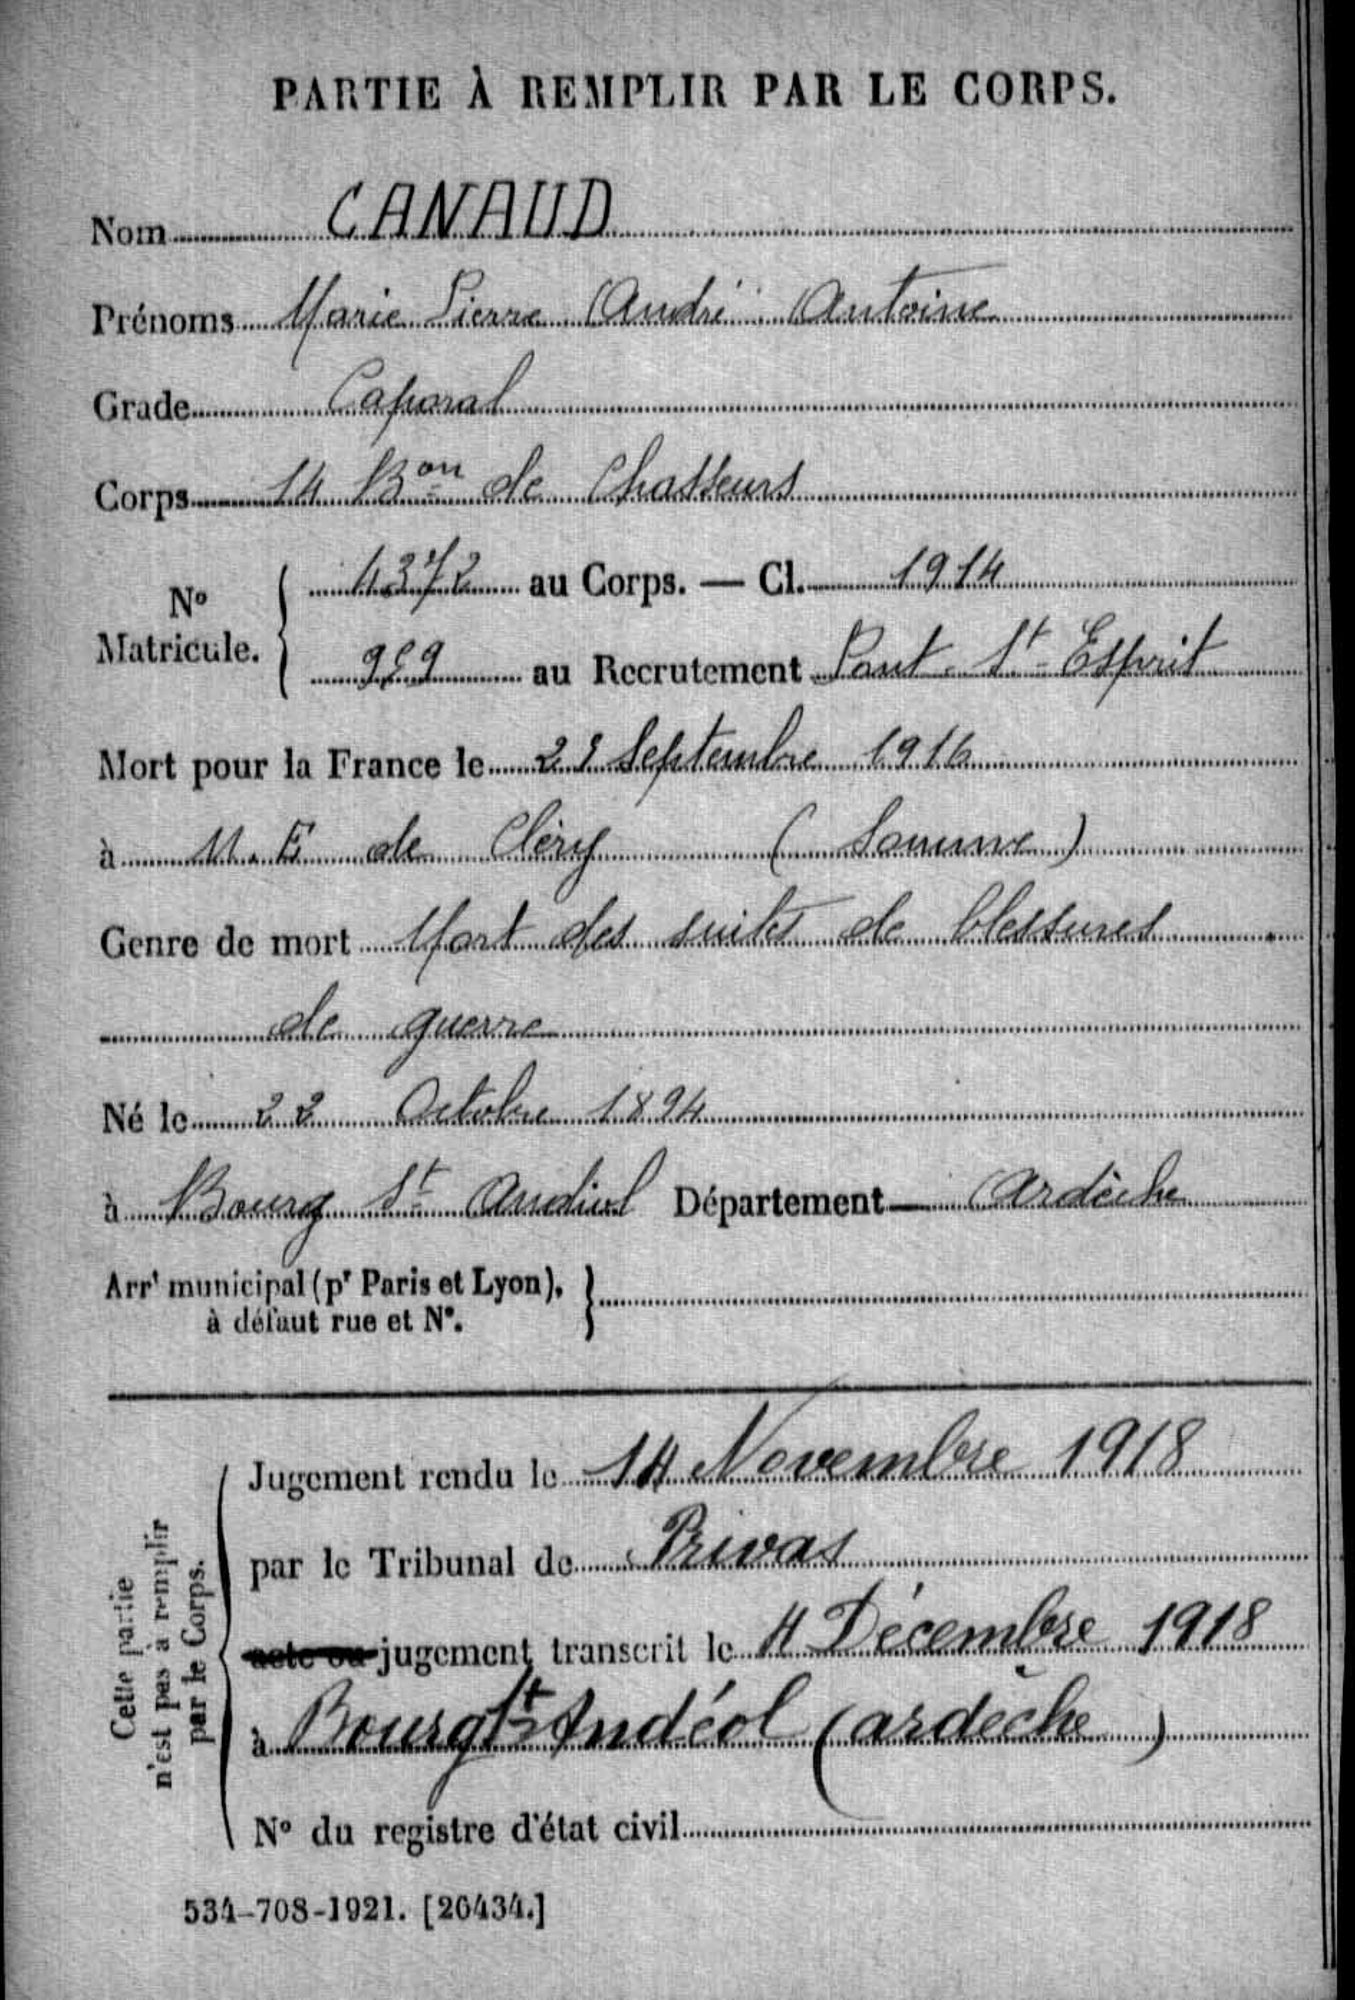 PARTIE À REMPLIR PAR LE CORPS.
Nom CANAUD
Prénoms Marie Pierre André Antoine
Grade Caporal
Corps 14 Bon de Chasseurs
No Matricule. 4372 au Corps. — Cl. 1914
959 au Recrutement Pont St Esprit
Mort pour la France le Septembre 1916
à N.E de Cléry (Somme)
Genre de mort Mort des suites de blessures
de guerre
Né le 22 Octobre 1894
à Bourg St Andiol Département — Ardèche
Arrt municipal (pr Paris et Lyon),
à défaut rue et No.
Jugement rendu le 14 Novembre 1918
par le Tribunal de Privas
acte ou jugement transcrit le 4 Décembre 1918
à Bourg St Andéol (ardèche)
No du registre d'état civil
Cette partie
n'est pas à remplir
par le Corps.
534-708-1921. [26434.]